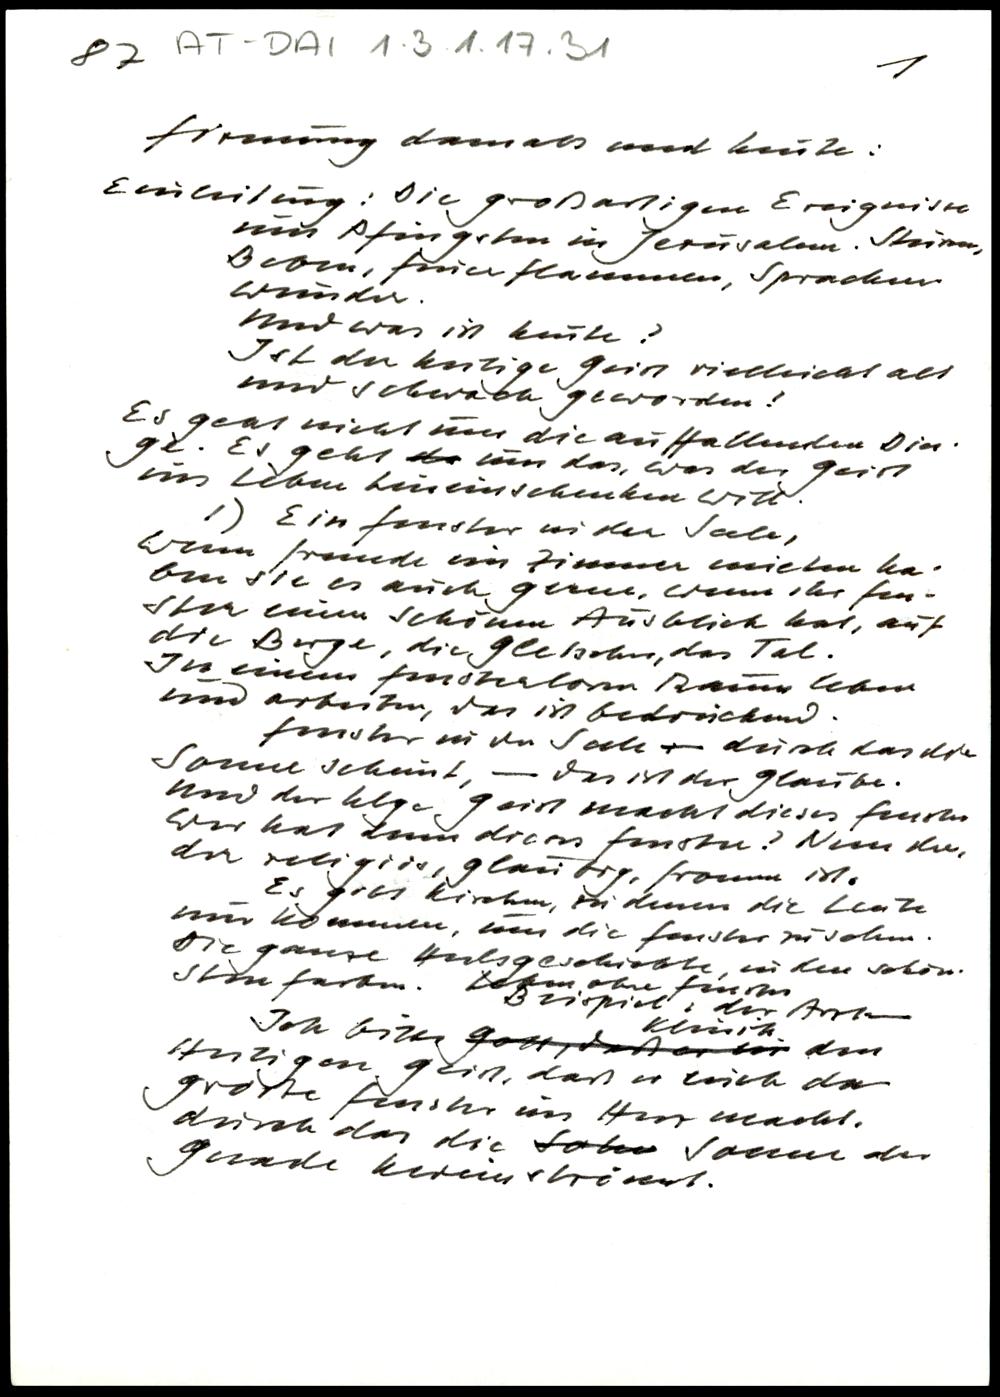 87 AT-DAI 1.3.1.17.31 1
Firmung damals und heute:
Einleitung: Die großartigen Ereignisse
um Pfingsten in Jerusalem. Sturm,
Beben, Feuerflammen, Sprachen
wunder.
Und was ist heute?
Ist der heilige Geist vielleicht alt
und schwach geworden?
Es geht nicht um die auffallenden Din-
ge. Es geht um das, was der Geist
ins Leben hineinschenken will.
1) Ein Fenster in der Seele,
Wenn Fremde ein Zimmer mieten ha-
ben sie es auch gerne, wenn ihr Fen-
ster einen schönen Ausblick hat, auf
die Berge, die Gletscher, das Tal.
In einem fensterlosen Raum leben
und arbeiten, das ist bedrückend.
Fenster in der Seele – durch das die
Sonne scheint, — das ist der Glaube.
Und der hlge Geist macht dieses Fenster
Wer hat denn dieses Fenster? Nun der,
der religiös, gläubig, fromm ist.
Es gibt Kirchen, in denen die Leute
nur kommen, um die Fenster zu sehen.
Die ganze Heilsgeschichte, in den schön-
sten Farben. Leben ohne Fenster
Beispiel: der Arzt
Klinik
Ich bitte Gott, daß er den
Heiligen Geist, daß er mich da
größte Fenster ins Herz macht.
durch das die Sonne der
Gnade hereinströmt.